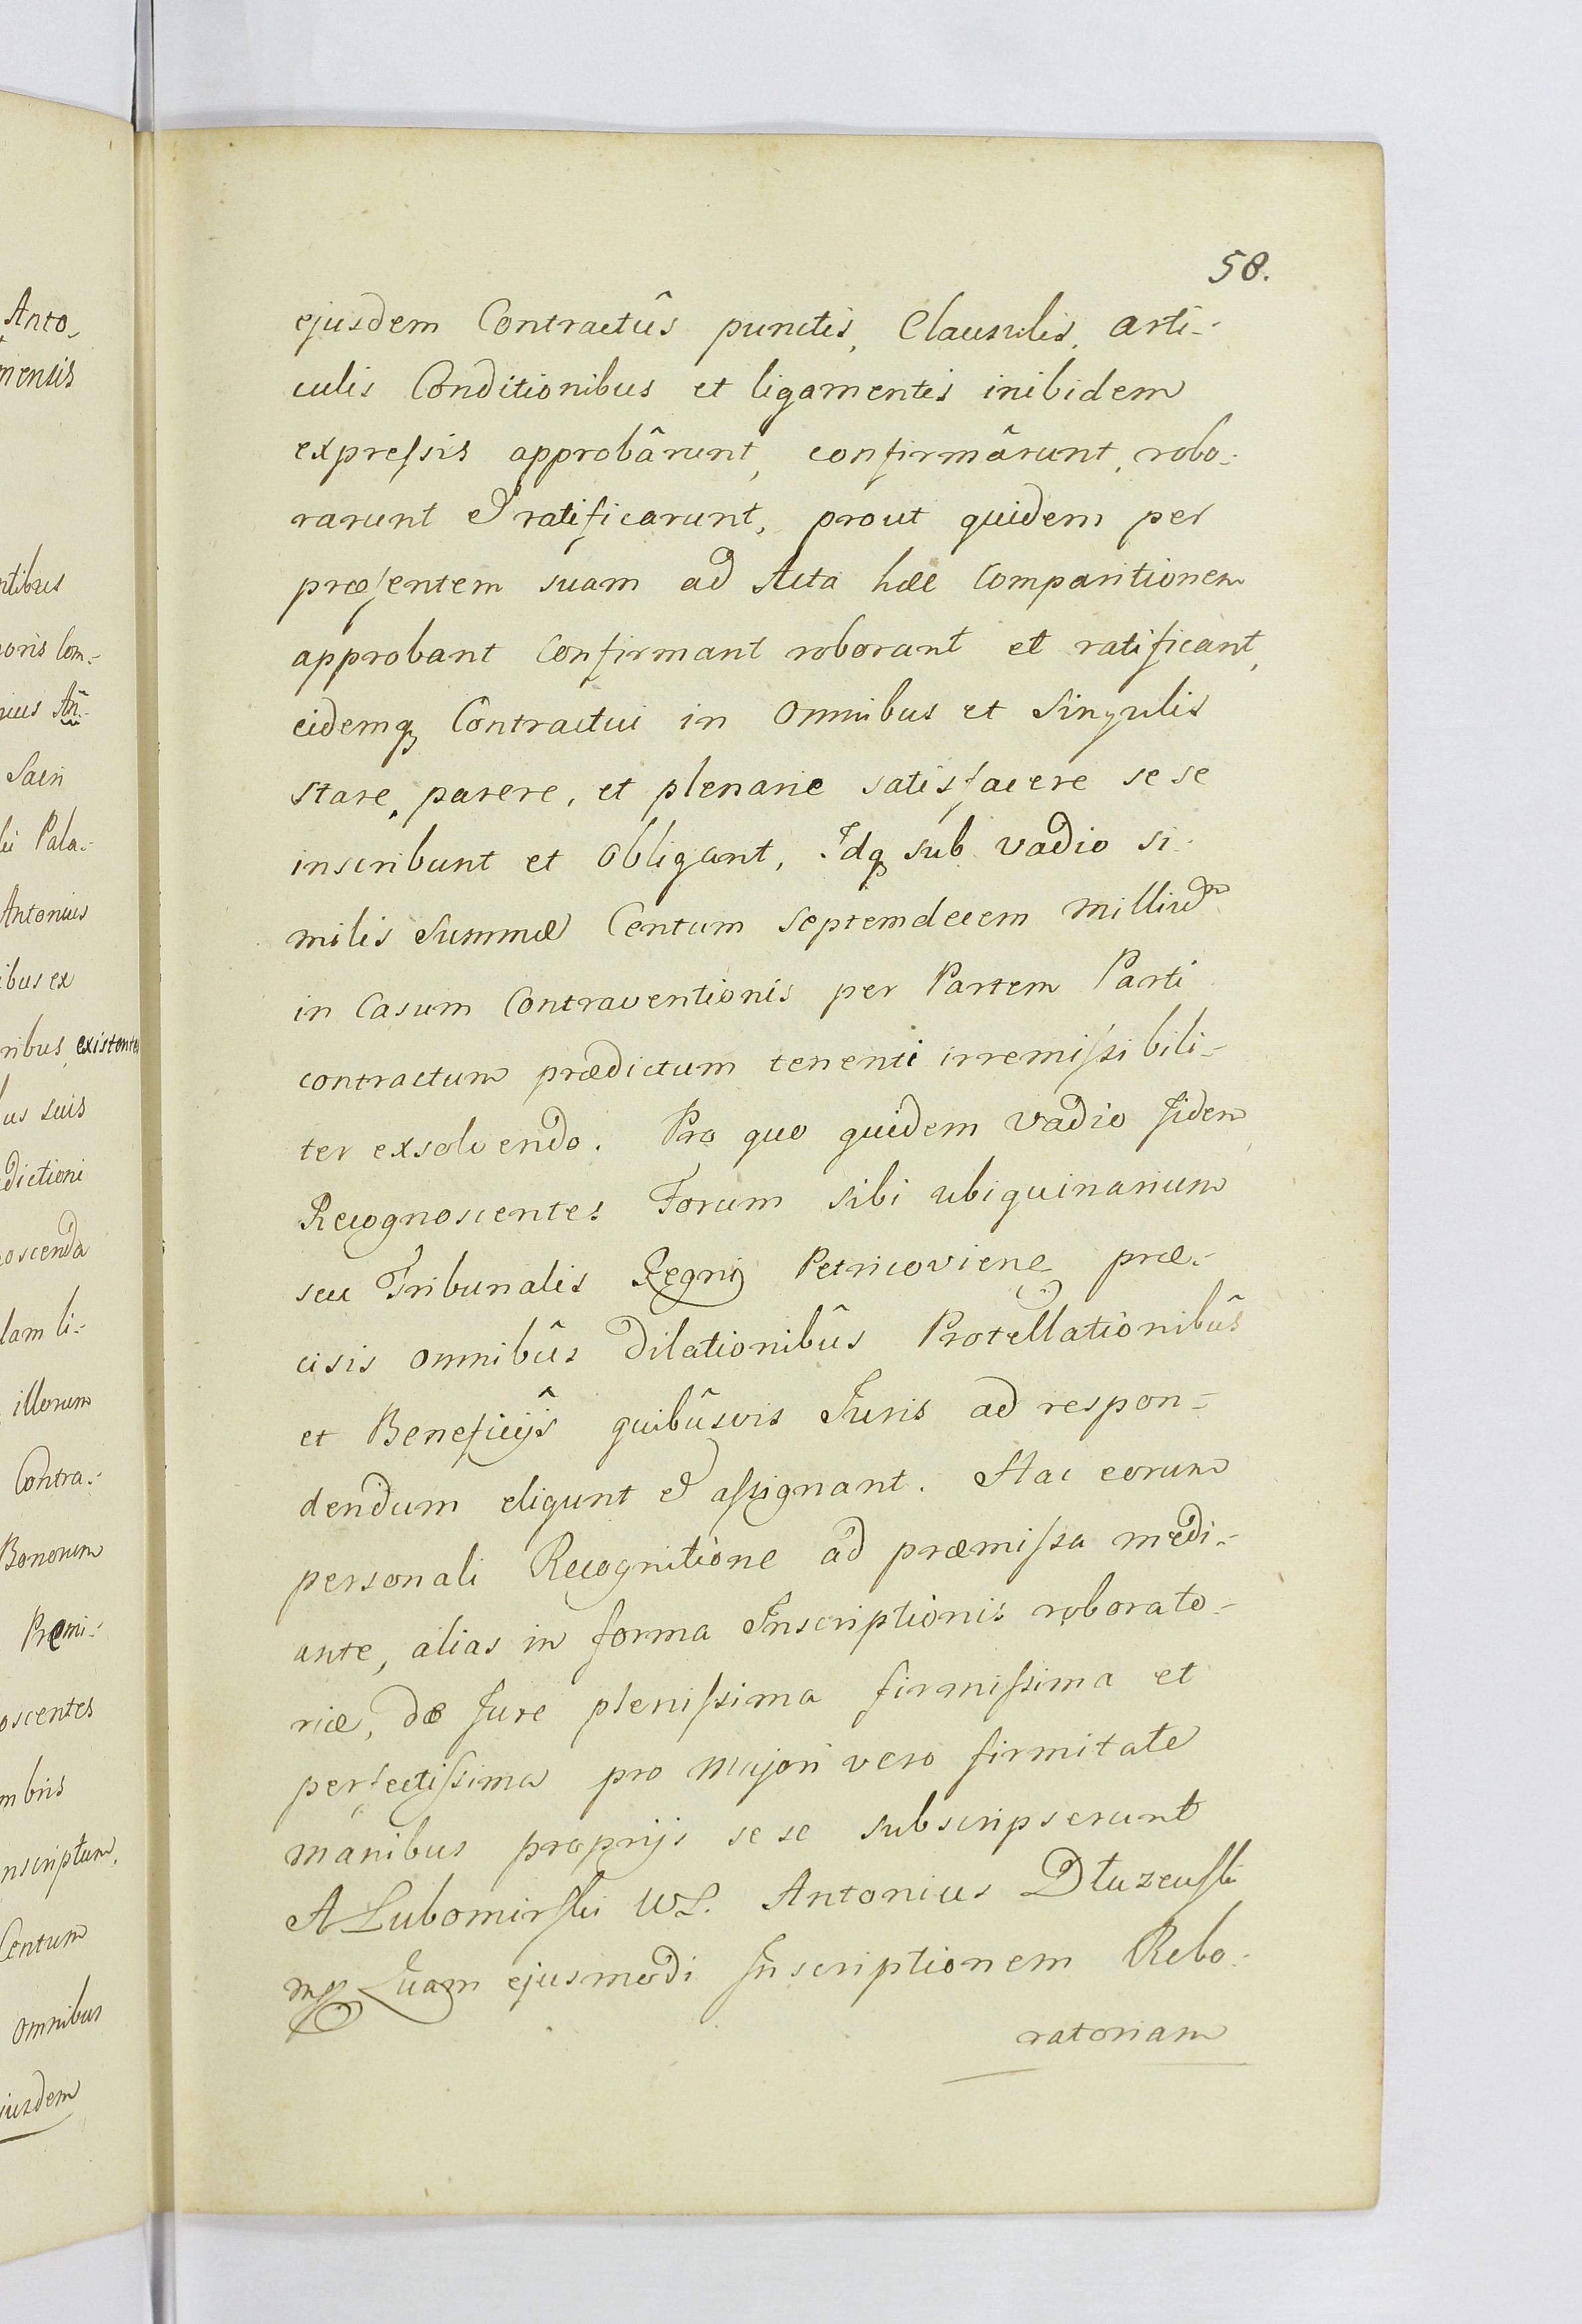 58.
ejusdem Contractûs punctis, Clausulis, arti-
culis Conditionibus et ligamentis inibidem
expressis approbârunt, confirmârunt, robo-
rarunt et ratificarunt, prout quidem per
præsentem suam ad Acta hæc comparitionem
approbant confirmant roborant et ratificant,
eidemq Contractui in omnibus et singulis
stare, parere, et plenarie satisfacere sese
inscribunt et obligant, Idq sub vadio si-
milis summæ Centum septemdecem milliu͠
in casum contraventionis per Partem Parti
contractum prædictum tenenti irremissibili-
ter exsolvendo. Pro quo quidem vadio iidem
Recognoscentes Forum sibi ubiquinarium
seu Tribunalis Regni Petricoviene præ-
cisis omnibûs Dilationibûs Protellationibûs
et Beneficijs quibûsvis Juris ad respon-
dendum eligunt et assignant. Hac eorum
personali Recognitione ad præmissa medi-
ante, alias in forma Inscriptionis roborato-
riæ, de Jure plenissima firmissima et
perfectissima pro majori vero firmitate
manibus proprijs sese subscripserunt
A Lubomirski WL. Antonius Dłuzewski
mp Quam ejusmodi Inscriptionem Robo-
ratoriam
Anto-
mensis
ntibus
oris Com-
Sacri
Pala-
Antonius
ibus ex
ribus existentes
us suis
dictioni
oscenda
lam li-
illorum
Contra-
Bonorum
Premi-
oscentes
mbris
nscriptum,
Centum
omnibus
jusdem